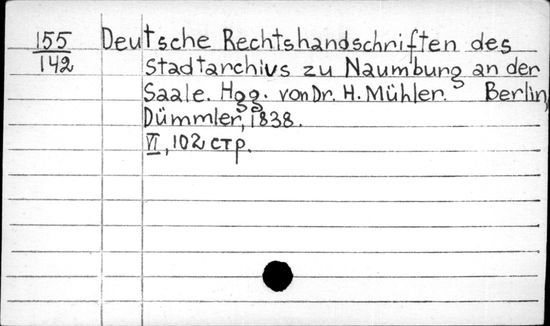 155 Deutsche Rechtshandschriften des
142 Stadtarchivs zu Naumburg an der
Saale. Hgg. von Dr. H. Mühler. Berlin,
Dümmler, 1838.
VI, 102 стр.